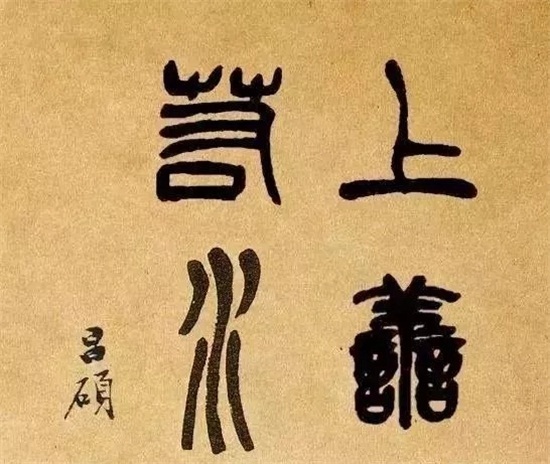 上善
若水
昌碩